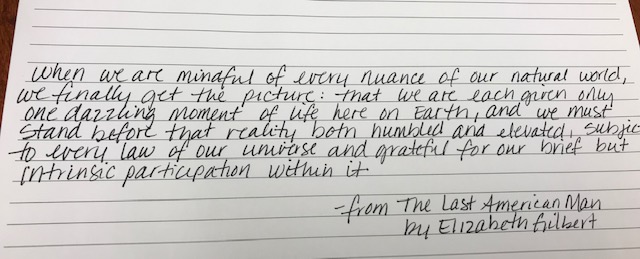 When we are mindful of every nuance of our natural world,
we finally get the picture: that we are each given only
one dazzling moment of life here on Earth, and we must
stand before that reality both humbled and elevated, subjec
to every law of our universe and grateful for our brief but
intrinsic participation within it
-from The Last American Man
by Elizabeth Gilbert